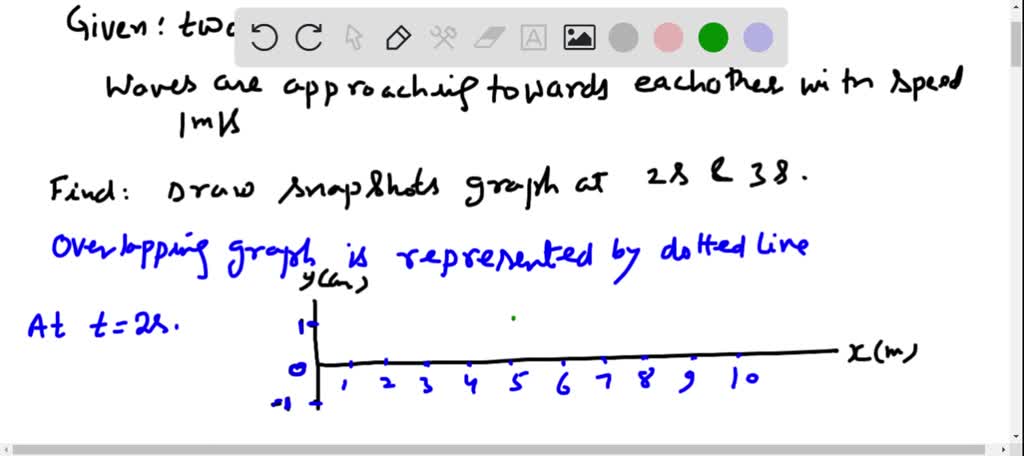 Given: two
Waves are approaching towards eachother with speed
1m/s
Find: Draw snapshots graph at 2s & 3s.
Overlapping graph is represented by dotted line
y(cm)
At t=2s.
1
x(m)
0
1 2 3 4 5 6 7 8 9 10
-1
A